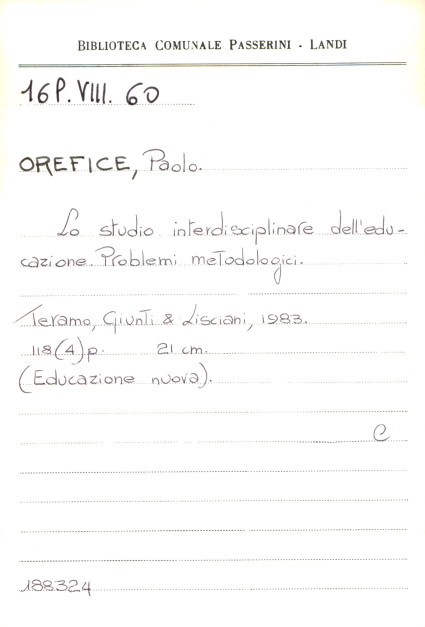 BIBLIOTECA COMUNALE PASSERINI - LANDI
16P.VIII. 60
OREFICE, Paolo.
Lo studio interdisciplinare dell'edu-
cazione. Problemi metodologici.
Teramo, Giunti & Lisciani, 1983.
118(4)p. 21 cm.
(Educazione nuova).
C
188324